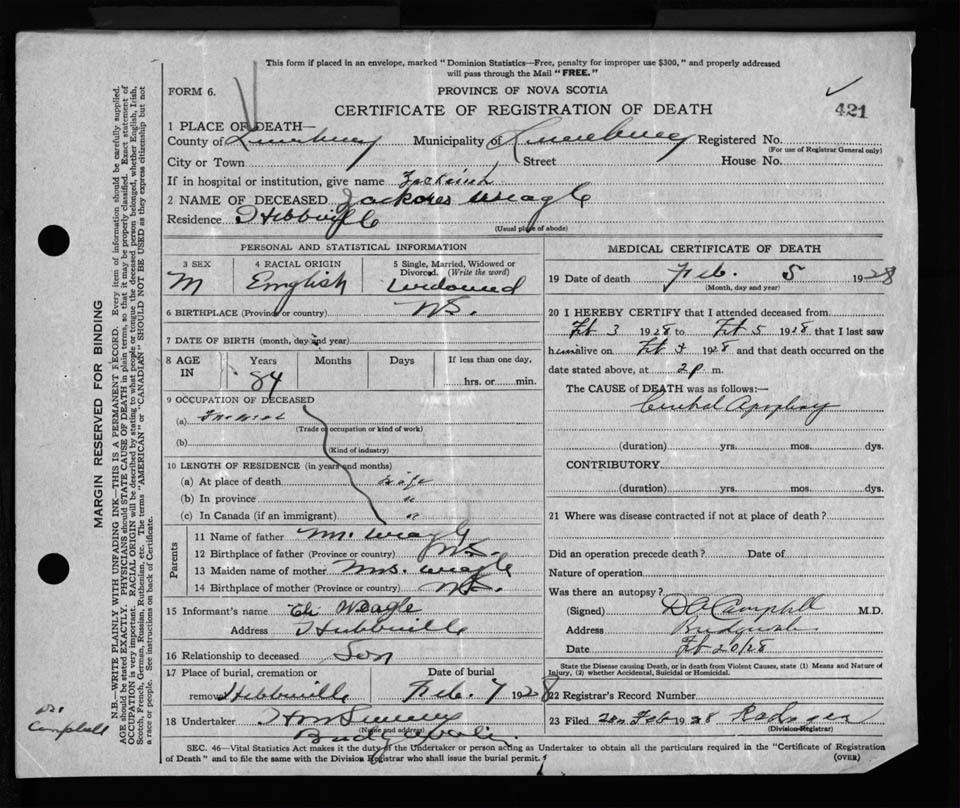 This form if placed in an envelope, marked "Dominion Statistics—Free, penalty for improper use $300," and properly addressed
will pass through the Mail "FREE."
FORM 6.
PROVINCE OF NOVA SCOTIA
CERTIFICATE OF REGISTRATION OF DEATH
421
1 PLACE OF DEATH—
County of Lunenburg Municipality of Lunenburg Registered No.
(For use of Registrar General only)
City or Town Street House No.
If in hospital or institution, give name
2 NAME OF DECEASED Weagle
Residence Hebbville
(Usual place of abode)
PERSONAL AND STATISTICAL INFORMATION
3 SEX
M
4 RACIAL ORIGIN
English
5 Single, Married, Widowed or
Divorced. (Write the word)
Widowed
6 BIRTHPLACE (Province or country) N.S.
7 DATE OF BIRTH (month, day and year)
8 AGE
IN
Years
84
Months
Days
If less than one day,
hrs. or min.
9 OCCUPATION OF DECEASED
(a)
(Trade or occupation or kind of work)
(b)
(Kind of industry)
10 LENGTH OF RESIDENCE (in years and months)
(a) At place of death life
(b) In province "
(c) In Canada (if an immigrant) "
Parents
11 Name of father Mr. Weagle
12 Birthplace of father (Province or country) N.S.
13 Maiden name of mother Mrs. Weagle
14 Birthplace of mother (Province or country) N.S.
15 Informant's name Eli Weagle
Address Hebbville
16 Relationship to deceased Son
17 Place of burial, cremation or
removal Hebbville
Date of burial
Feb. 7 1928
18 Undertaker
(Name and address)
MEDICAL CERTIFICATE OF DEATH
19 Date of death Feb. 5 1928
(Month, day and year)
20 I HEREBY CERTIFY that I attended deceased from
Feb 3 1928 to Feb 5 1928 that I last saw
him alive on Feb 1928 and that death occurred on the
date stated above, at 2 p m.
The CAUSE of DEATH was as follows:—
(duration) yrs. mos. dys.
CONTRIBUTORY
(duration) yrs. mos. dys.
21 Where was disease contracted if not at place of death?
Did an operation precede death? Date of
Nature of operation
Was there an autopsy?
(Signed) D A Campbell M.D.
Address
Date Feb 20/28
State the Disease causing Death, or in death from Violent Causes, state (1) Means and Nature of
Injury, (2) whether Accidental, Suicidal or Homicidal.
22 Registrar's Record Number
23 Filed Feb 1928
(Division Registrar)
SEC. 46—Vital Statistics Act makes it the duty of the Undertaker or person acting as Undertaker to obtain all the particulars required in the "Certificate of Registration
of Death" and to file the same with the Division Registrar who shall issue the burial permit.
(OVER)
MARGIN RESERVED FOR BINDING
N.B.—WRITE PLAINLY WITH UNFADING INK—THIS IS A PERMANENT RECORD. Every item of information should be carefully supplied.
AGE should be stated EXACTLY. PHYSICIANS should STATE CAUSE OF DEATH in plain terms, so that it may be properly classified. Exact statement of
OCCUPATION is very important. RACIAL ORIGIN will be described by stating to what people or tongue the deceased person belonged, whether English, Irish,
Scotch, French, German, Russian, Ruthenian, etc. The terms "AMERICAN" or "CANADIAN" SHOULD NOT BE USED as they express citizenship but not
a race or people. See instructions on back of Certificate.
Dr.
Campbell